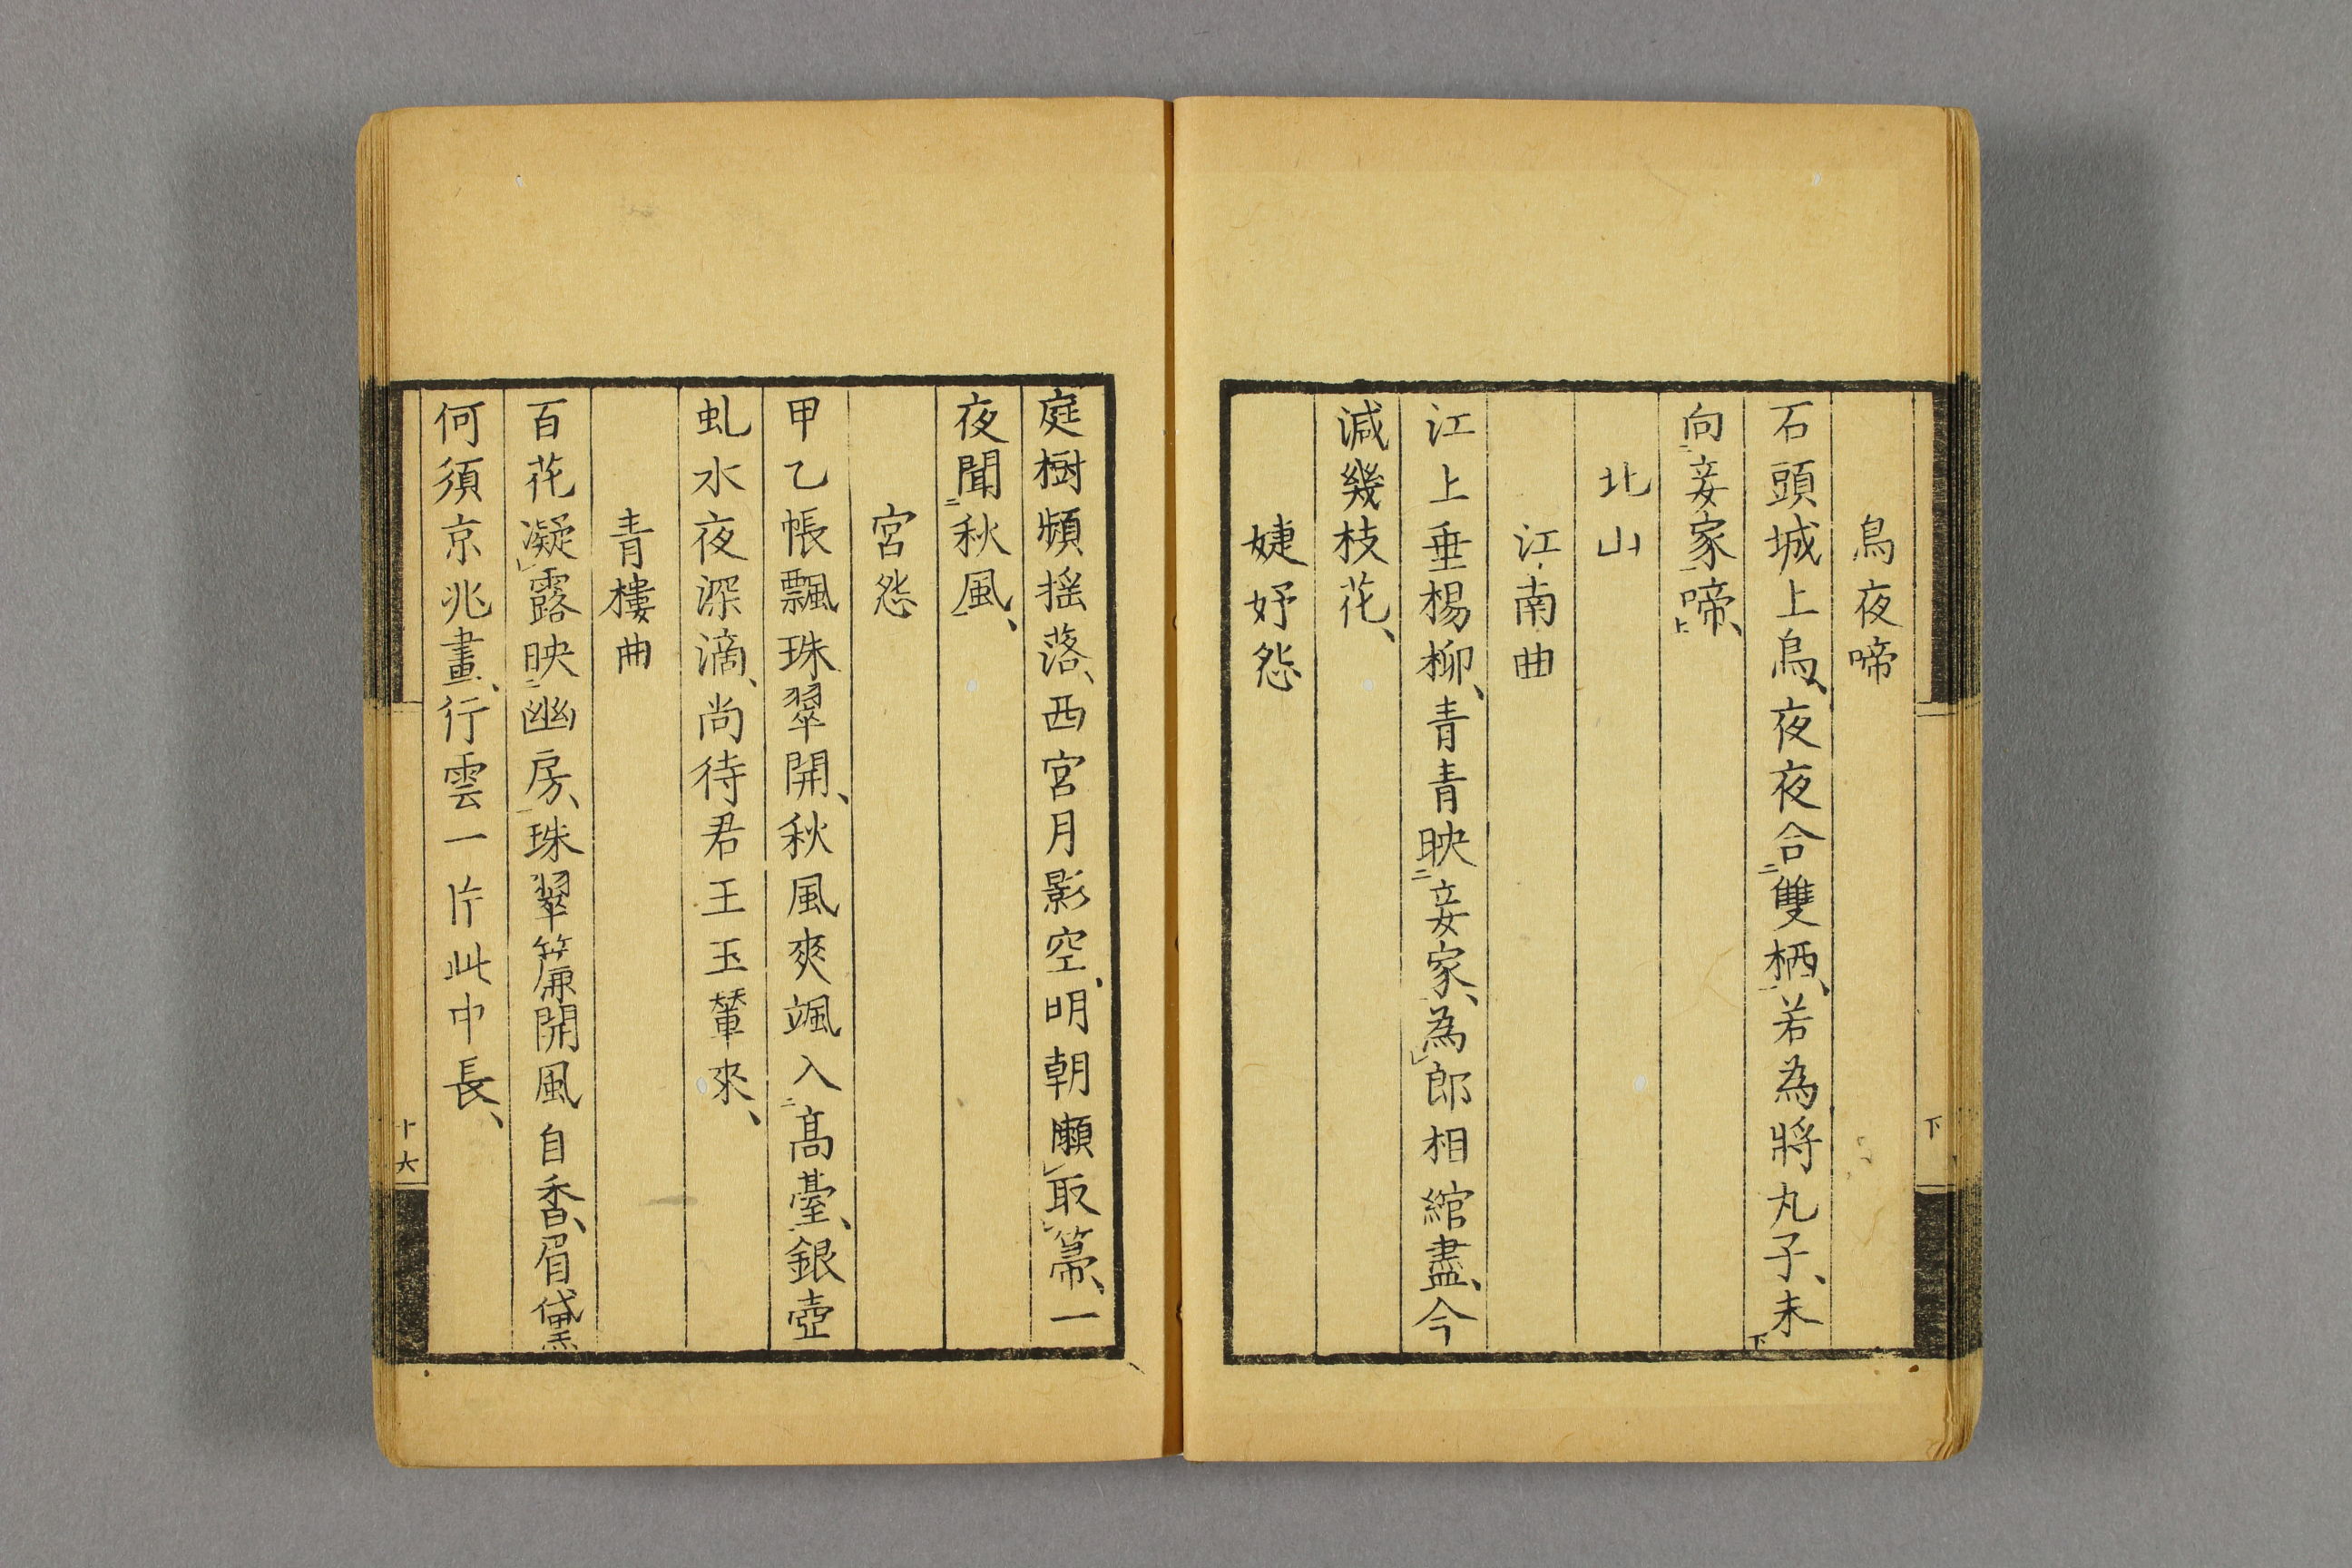 烏夜啼
石頭城上烏、夜夜合二雙栖一、若為將丸子、未下
向二妾家一啼上、
北山
江南曲
江上垂楊柳、青青映二妾家一、為レ郎相綰盡、今
減幾枝花、
婕妤怨
庭樹頻揺落、西宮月影空、明朝願レ取レ篅、一
夜聞二秋風一、
宮怨
甲乙帳飄珠翠開、秋風爽颯入二高臺一、銀壺
虬水夜深滴、尚待君王玉輦來、
青樓曲
百花凝レ露映二幽房一、珠翠簾開風自香、眉黛
何須京兆畫、行雲一片此中長、
下
十六